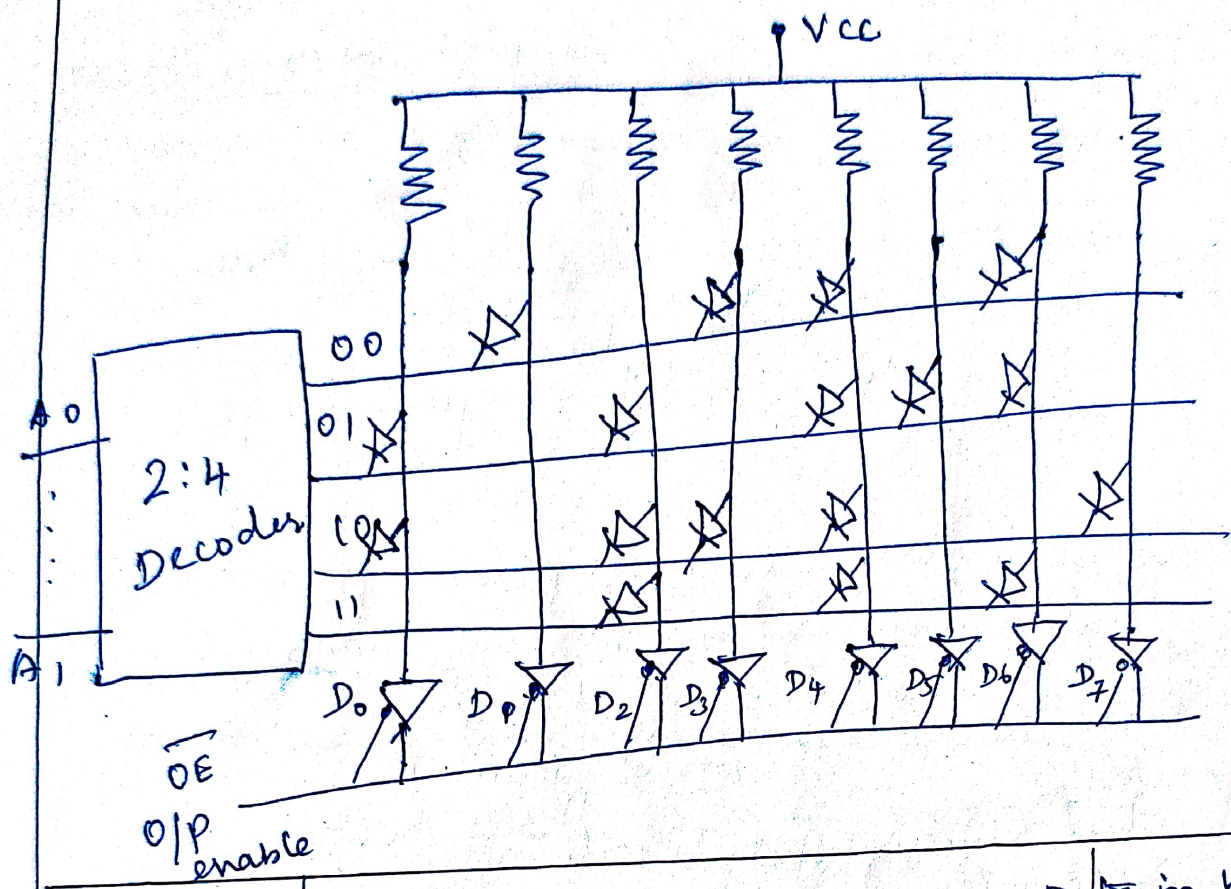 VCC
00
A0
01
2:4
Decoder
10
11
A1
D0 D1 D2 D3 D4 D5 D6 D7
OE
O/P
enable